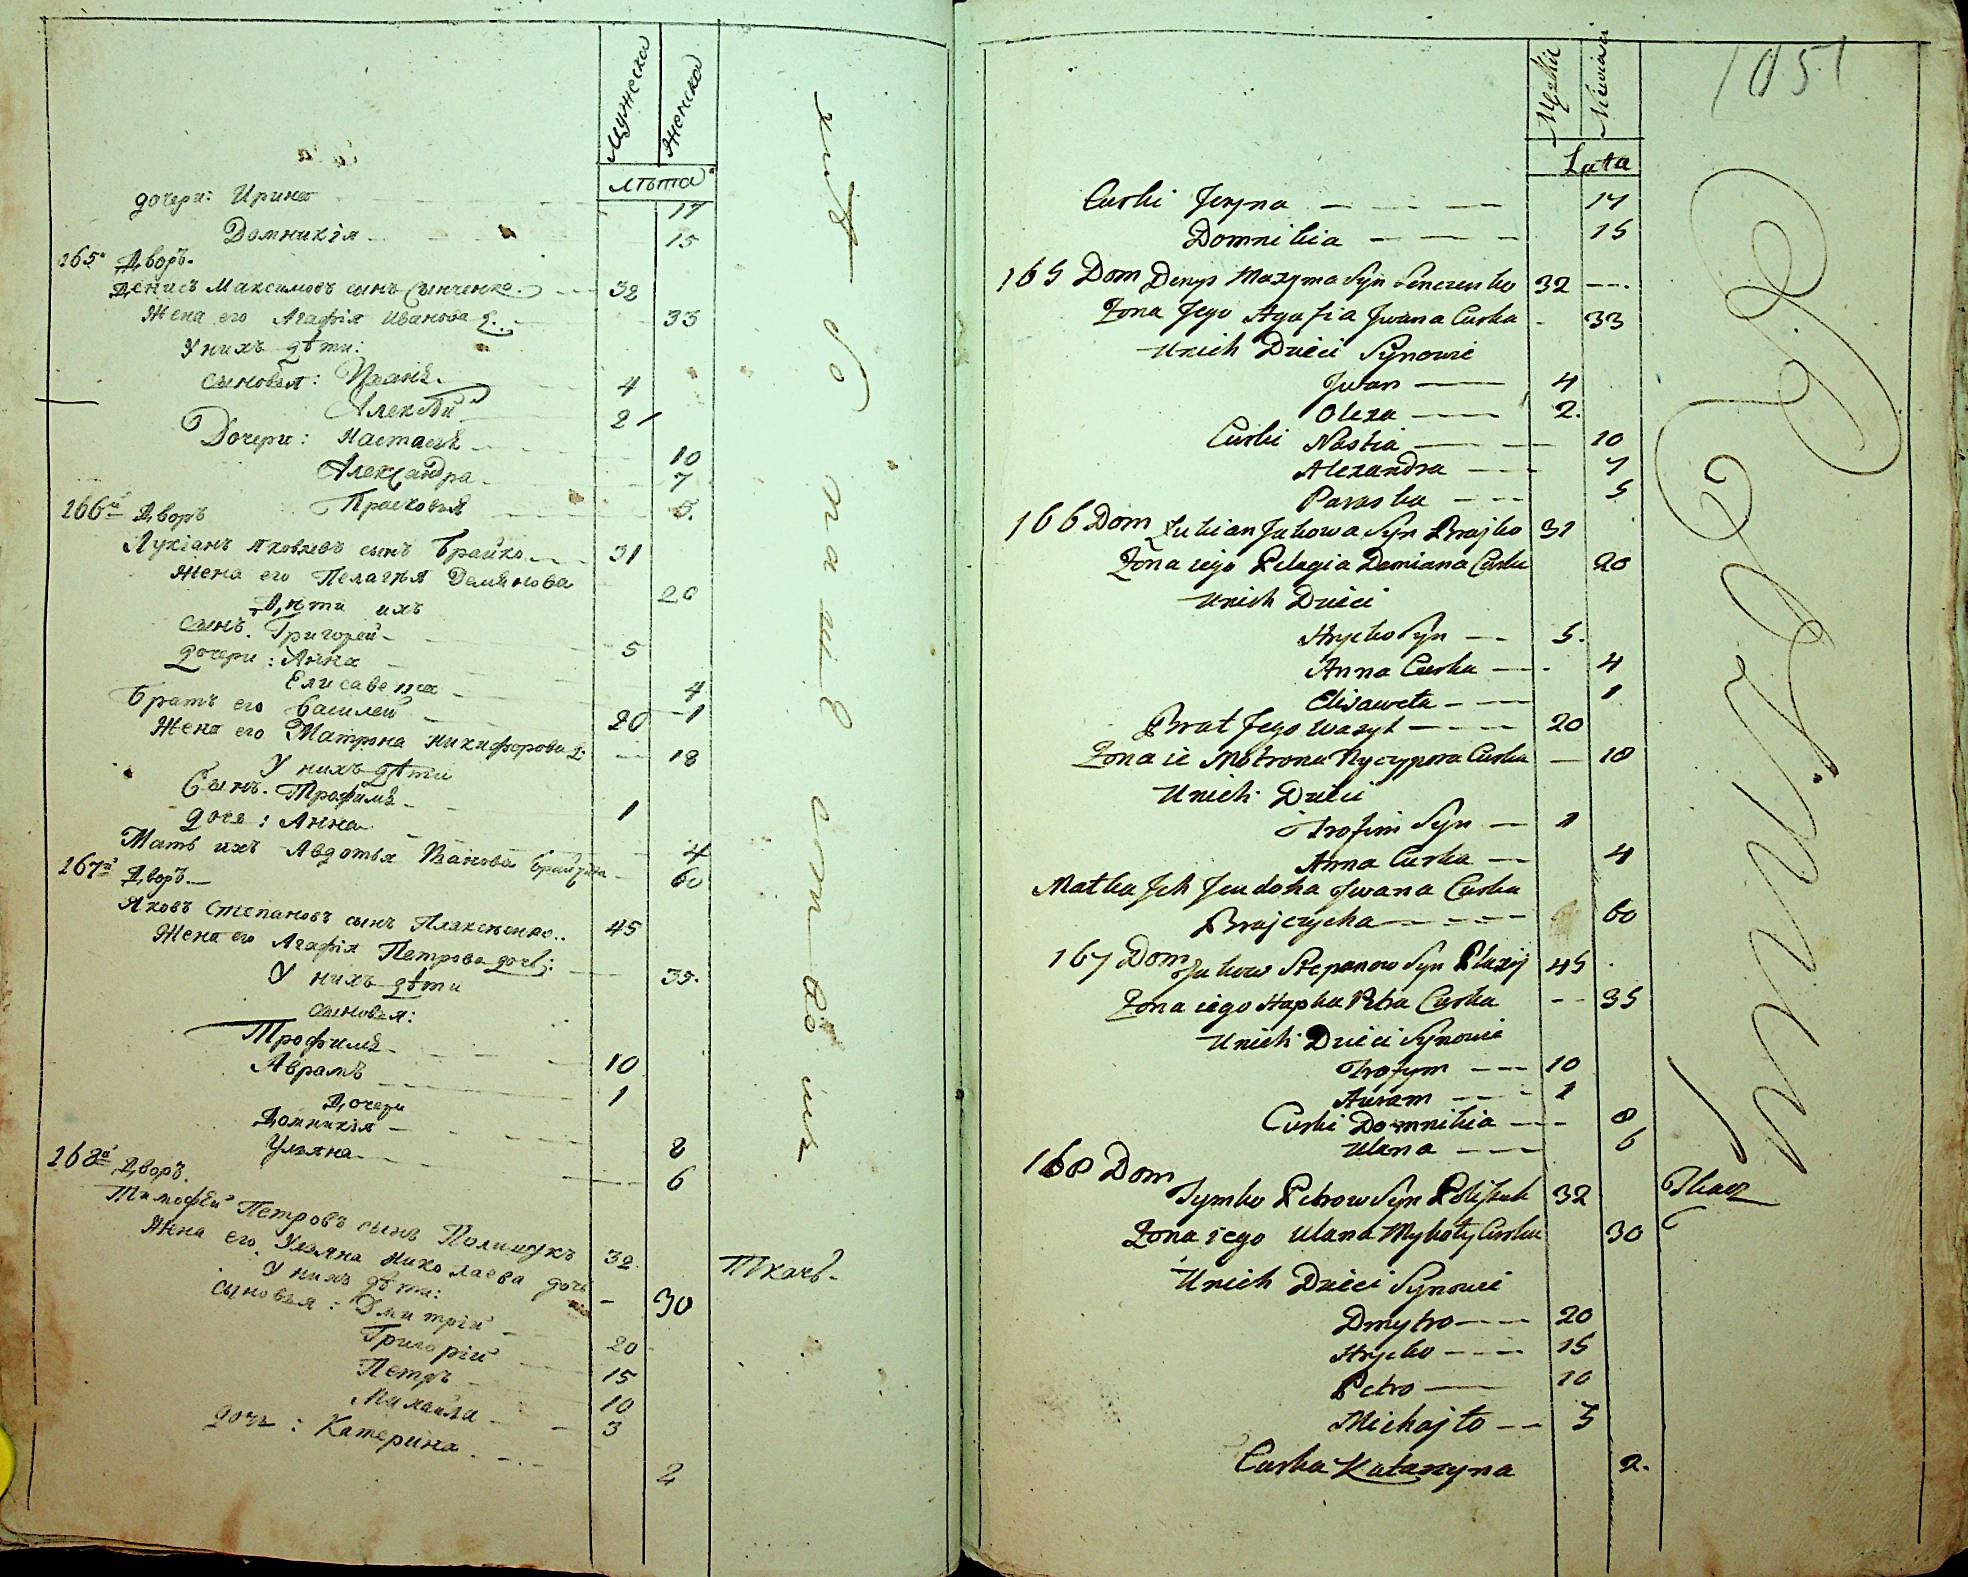 Мужеска
Женска
лѣта
дочери: Ирина 17
Домникія 15
165й Дворъ.
Денисъ Максимовъ сынъ Сынченко 32
Жена его Агафія Иванова д. 33
У нихъ дѣти:
сыновья: Иванъ. 4
Алексѣй 2
Дочери: Настасія 10
Александра 7
Прасковья 5.
166й Дворъ
Лукіанъ Яковлевъ сынъ Брайко 31
Жена его Пелагѣя Дамянова 20
Дѣти ихъ
сынъ. Григорей 5
дочери: Анна 4
Елисавета 1
Братъ его Василей 20
Жена его Матрона Никифорова д. 18
У нихъ дѣти
Сынъ. Трофимъ 1
доче: Анна 4
Мать ихъ Авдотья Иванова 60
167й Дворъ
Яковъ Степановъ сынъ Плаксѣенко.. 45
Жена его Агафія Петрова дочь: 35.
У нихъ дѣти
сыновья:
Трофимъ 10
Аврамъ 1
Дочери
Домникія 8
Уляна 6
168й Дворъ.
Тимофѣй Петровъ сынъ Полищукъ 32 Ткачъ.
Жена его Уляна Николаева дочь 30
У нихъ дѣти:
сыновья: Дмитрій 20
Григорій 15
Петръ 10
Михайла 3
дочь: Катерина 2
1051
Męzkie
Lata
Curki Jeryna 17
Domnikia 15
165 Dom Denys Maxyma Syn Senczenko 32
Zona Jego Agafia Jwana Curka 33
Unich Dzieci Synowie
Jwan 4
Olexa 2.
Curki Nastia 10
Alexandra 7
Paraska 5
166 Dom Łukian Jakowa Syn Brajko 31
Zona iego Pelagia Demiana Curka 20
Unich Dzieci
Hryćko Syn 5.
Anna Curka 4
Elisaweta 1
Brat Jego Wasyl 20
Zona ie Motrona Nyczypora Curka 18
Unich Dzieci
Trofim Syn 1
Anna Curka 4
Matka Jch Jeudoha Jwana Curka
Brajczycha 60
167 Dom Jakow Stepanow Syn Plaxij 45
Zona iego Hapka Petra Curka 35
Unich Dzieci Synowie
Trofym 10
Auram 1
Curki Domnikia 8
Ulana 6
168 Dom
Tymko Petrow Syn Poliszuk 32 Tkacz
Zona iego Ulana Mykoły Curka 30
Unich Dzieci Synowie
Dmytro 20
Hryćko 15
Petro 10
Michajło 3
Curka Katarzyna 2.